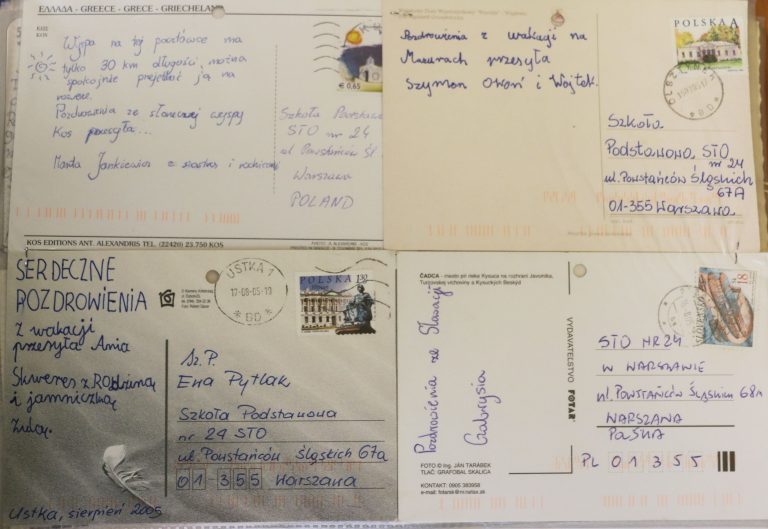 ΕΛΛΑΔΑ - GREECE - GRECE - GRIECHELAND
KOS
Wyspa na tej pocztówce ma
tylko 30 km długości, można
spokojnie przejechać ją na
rowerze.
Pozdrowienia ze słonecznej wyspy
Kos przesyła...
Marita Jankiewicz z siostrą i rodzicami
€ 0,65
Szkoła Podstawo
STO nr 24
ul Powstańców Śl
Warszawa
POLAND
KOS EDITIONS ANT. ALEXANDRIS TEL. (22420) 23.750 KOS
Pozdrowienia z wakacji na
Mazurach przesyła
Szymon Owoń i Wojtek.
POLSKA A
OLSZTYN
Szkoła
Podstawowa STO
nr 24
ul. Powstańców Śląskich
67A
01-355 Warszawa
SERDECZNE
POZDROWIENIA
z wakacji
przesyła Ania
Skweres z Rodziną
i jamniczką
Zulą.
Ustka, sierpień 2005
USTKA 1
17-08-05-19
* BD *
POLSKA 1,30
Sz. P.
Ewa Pytlak
Szkoła Podstawowa
nr 24 STO
ul. Powstańców Śląskich 67a
01 355 Warszawa
ČADCA - mesto pri rieke Kysuca na rozhraní Javorníka,
Turzovskej vrchoviny a Kysuckých Beskýd
Pozdrowienia ze Słowacji
Gabrysia
VYDAVATEĽSTVO FOTAR
FOTO © Ing. JÁN TARÁBEK
TLAČ: GRAFOBAL SKALICA
KONTAKT: 0905 383958
STO NR 24
W WARSZAWIE
ul. POWSTAŃCÓW ŚLĄSKICH 68A
WARSZAWA
POLSKA
PL 01355